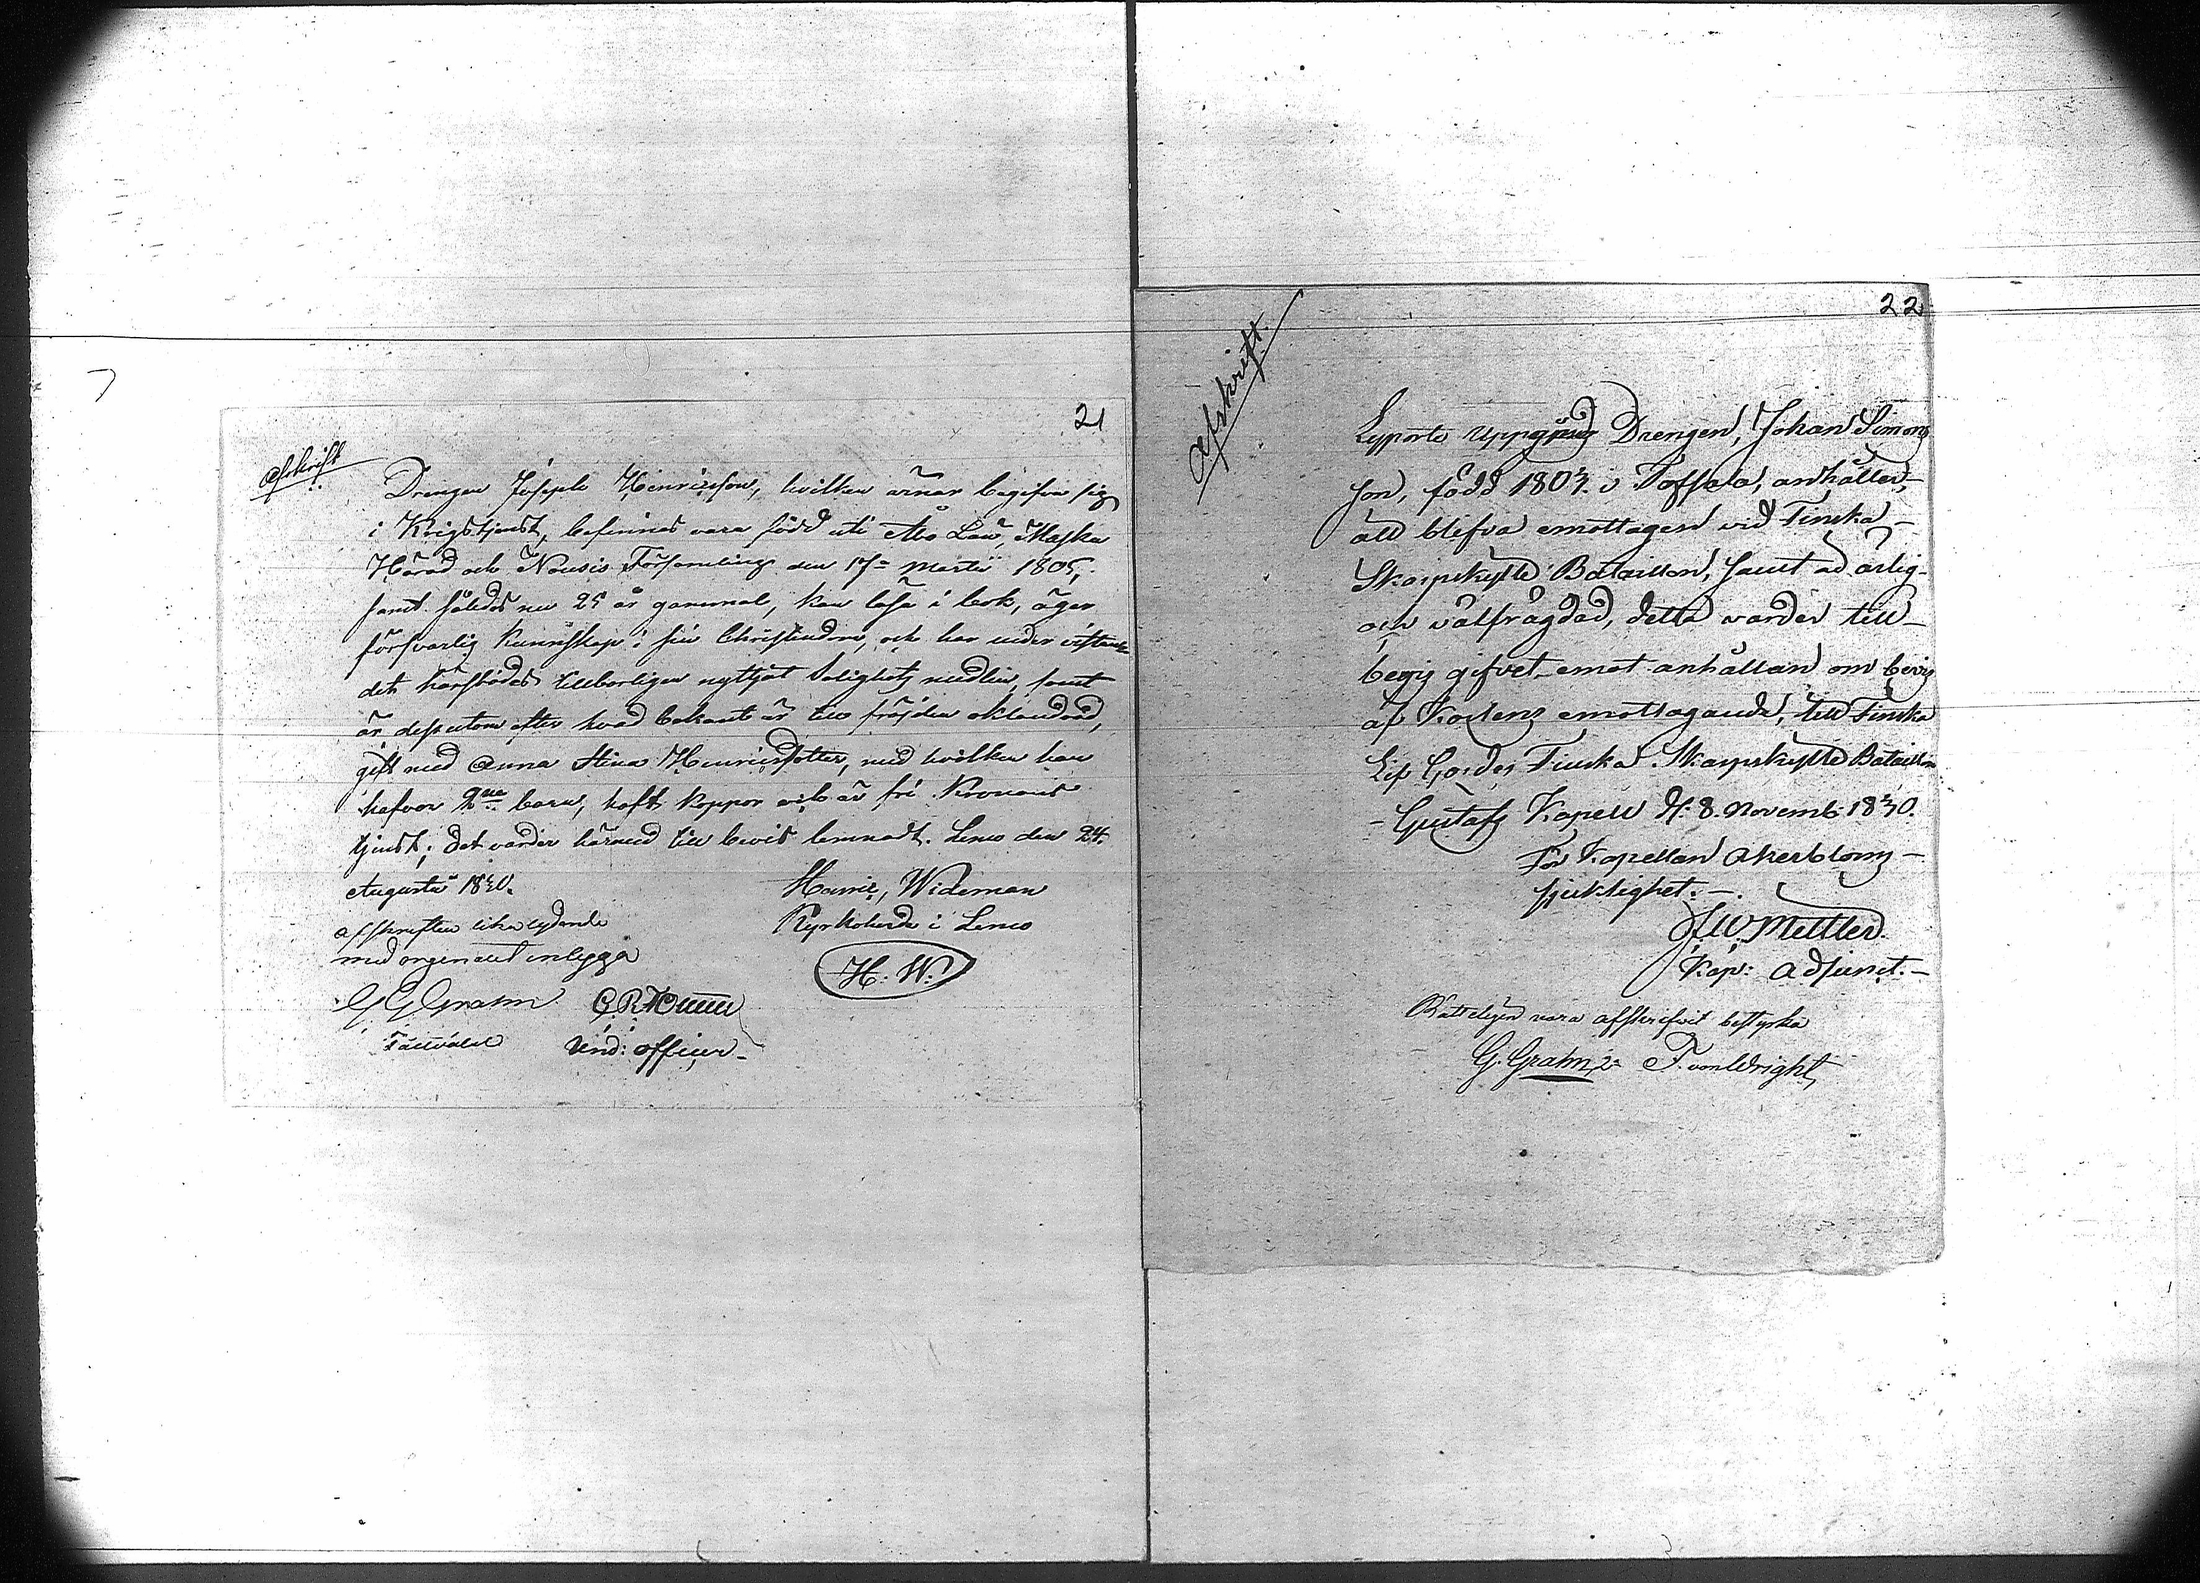 21
Afskrift
Drengen Joseph Henricsson, hvilken ärnar begifva sig
i Krigstjenst, befinnes vara född uti Åbo Län, Masku
Härad och Nousis Församling den 17de Martii 1805,
samt således nu 25 år gammal, kan läsa i bok, äger
försvarlig kunskap i sin Christendom, och har under vistande
det härstädes tillbörligen nyttjat Salighets medlen, samt
är dessutom efter hvad bekant är till fräjden oklandrad,
gift med Anna Stina Henricsdotter, med hvilken han
hafver 2ne barn, haft koppor och är fri Kronans
tjenst; det varder härmed till bevis lemnadt. Lemo den 24.
Augusti 1830.
Henric Wideman
Kyrkoherde i Lemo
H. W.
Afskriften lika lydande
med originalet intyga
G Grahn
Fältväbel
Und: officer
22
Afskrift.
Uppgifver Drengen, Johan Simons
son, född 1803. i Töfsala, anhåller,
att blifva emottagen vid Finska
Skarpskytte Bataillon, samt ad ärlig
och välfrägdad, detta varder till
bevis gifvet emot anhållan om bevis
af emottagande, till Finska
Lif Gardes Finska Skarpskytte Bataillon
Gustafs Kapell d. 8. Novemb. 1830.
För Kapellan Åkerbloms
sjuklighet.
Mettler
Kap: Adjunct.
Rätteligen vara afskrifvit bestyrka
G. Grahn F. von Wright